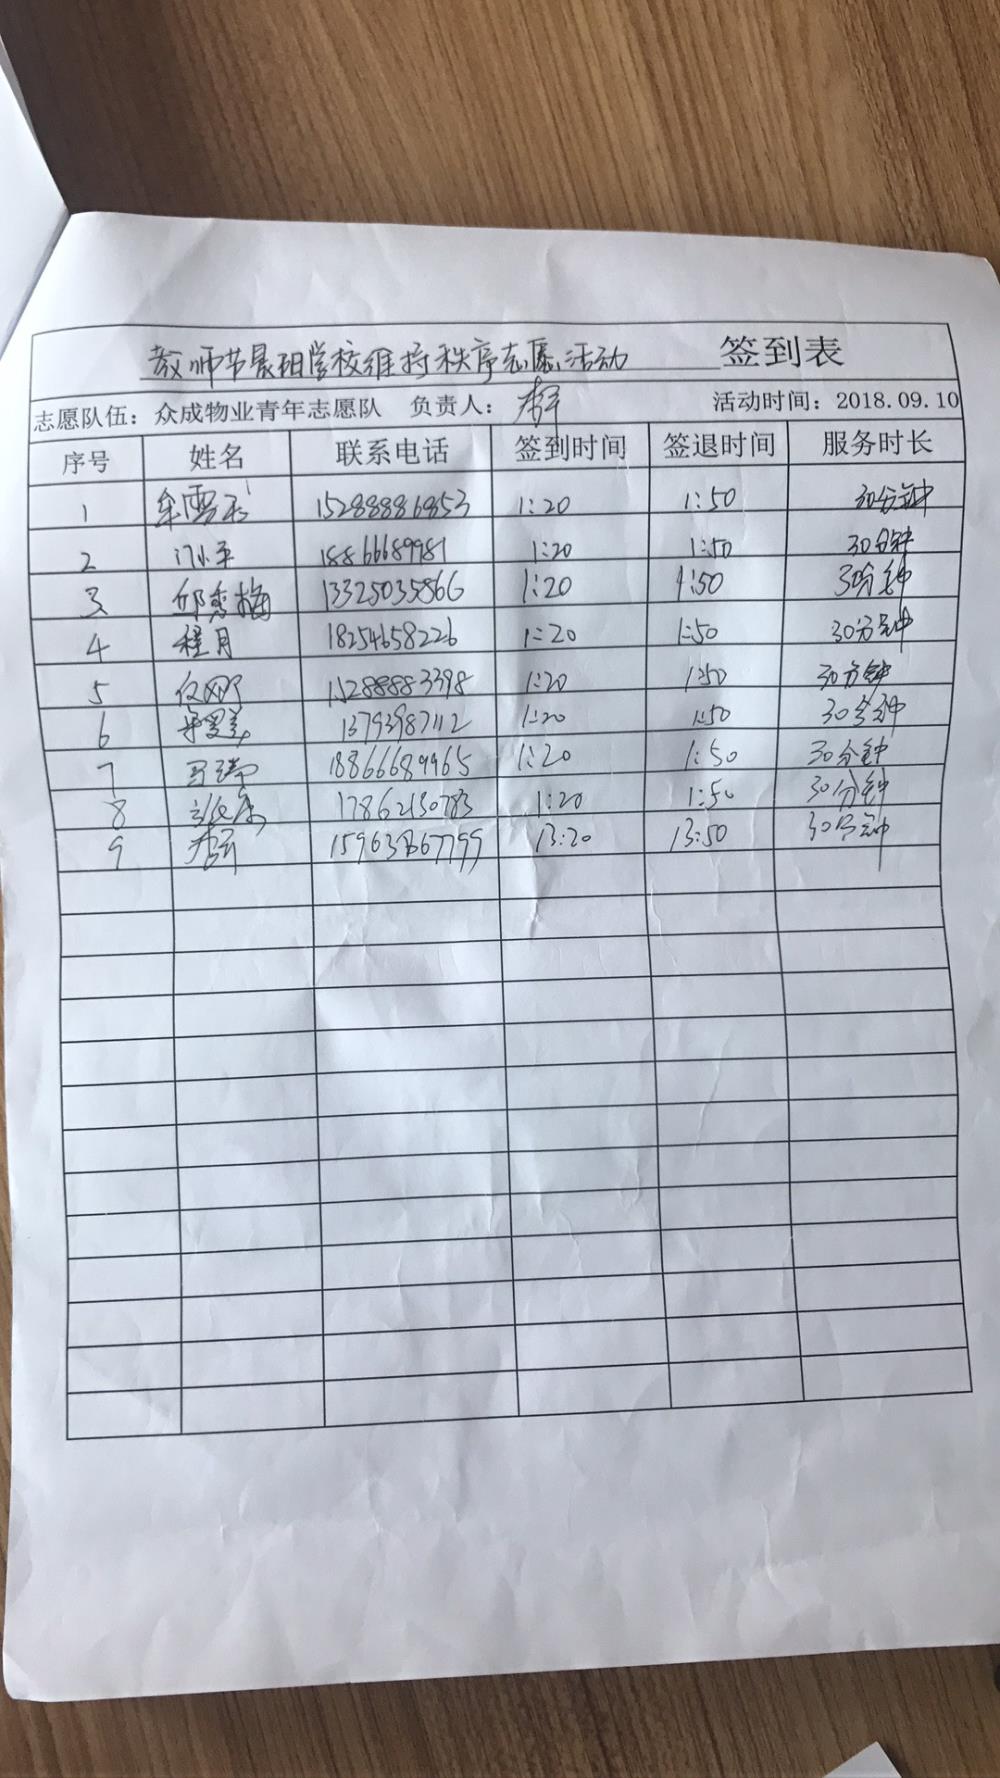 教师节晨阳学校维持秩序志愿活动 签到表
志愿队伍：众成物业青年志愿队 负责人： 活动时间：2018.09.10
序号 姓名 联系电话 签到时间 签退时间 服务时长
1 牟雪 15288886853 1:20 1:50 30分钟
2 门小平 18866689981 1:20 1:50 30分钟
3 邱秀梅 13325035866 1:20 1:50 30分钟
4 程月 18254658226 1:20 1:50 30分钟
5 15288883398 1:20 1:50 30分钟
6 13793987112 1:20 1:50 30分钟
7 18866689965 1:20 1:50 30分钟
8 17862130783 1:20 1:50 30分钟
9 13:20 13:50 30分钟